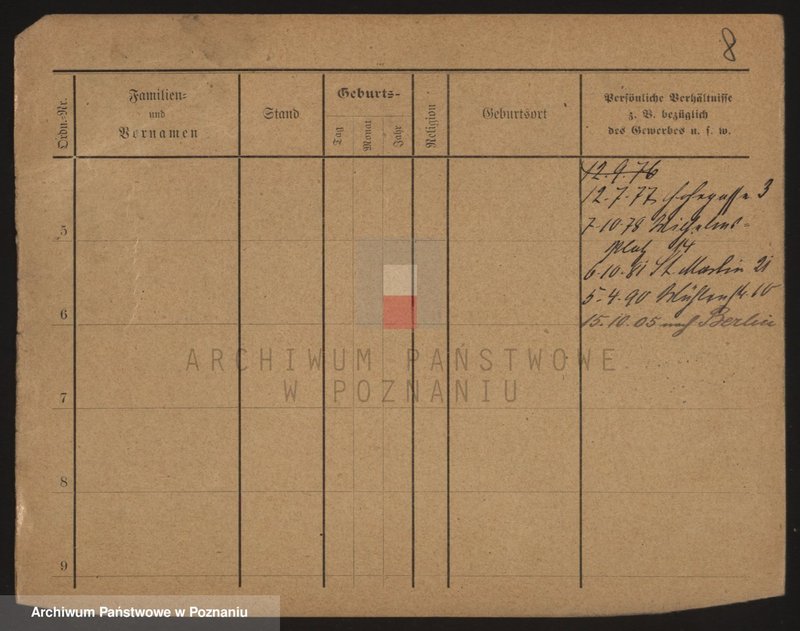 8
Ordn.-Nr.
Familien-
und
Vornamen
Stand
Geburts-
Tag
Monat
Jahr
Religion
Geburtsort
Persönliche Verhältnisse
z. B. bezüglich
des Gewerbes u. s. w.
12.9.76
12.7.77 3
5
7.10.78 Wilhelms-
Platz 14
6.10.81 St Martin 21
5.4.90 Mühlenstr. 10
6
15.10.05 nach Berlin
ARCHIWUM PAŃSTWOWE
W POZNANIU
7
8
9
Archiwum Państwowe w Poznaniu